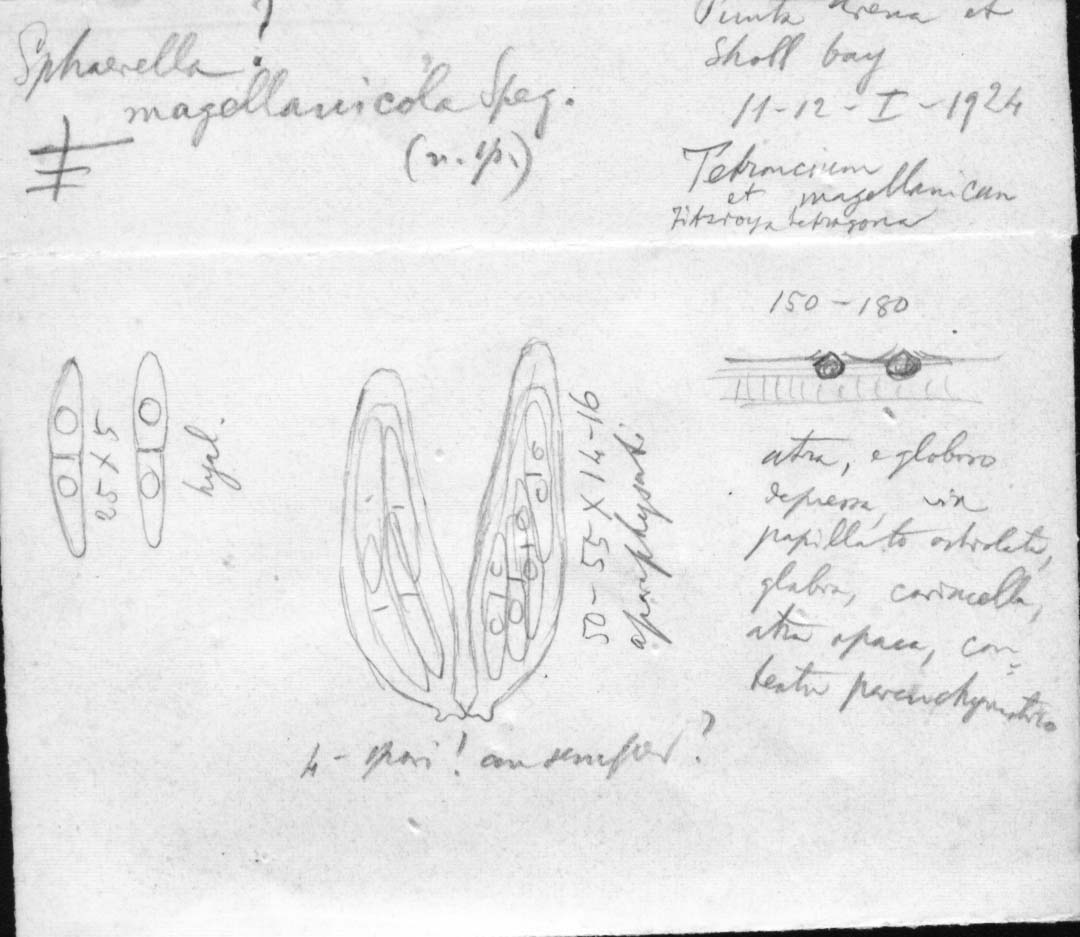 ?
Sphaerella
magellanicola Speg.
(n. sp.)
Punta Arena et
Sholl bay
11-12-I-1924
Tetroncium
et magellanicum
Fitzroya tetragona
150-180
25 X 5
hyal.
50-55 X 14-16
aparaphysati
atra, e globoso
depressa, vix
papillato ostiolata,
glabra, coriacella,
atra opaca, con-
textu parenchymatico
4-spori! an semper?